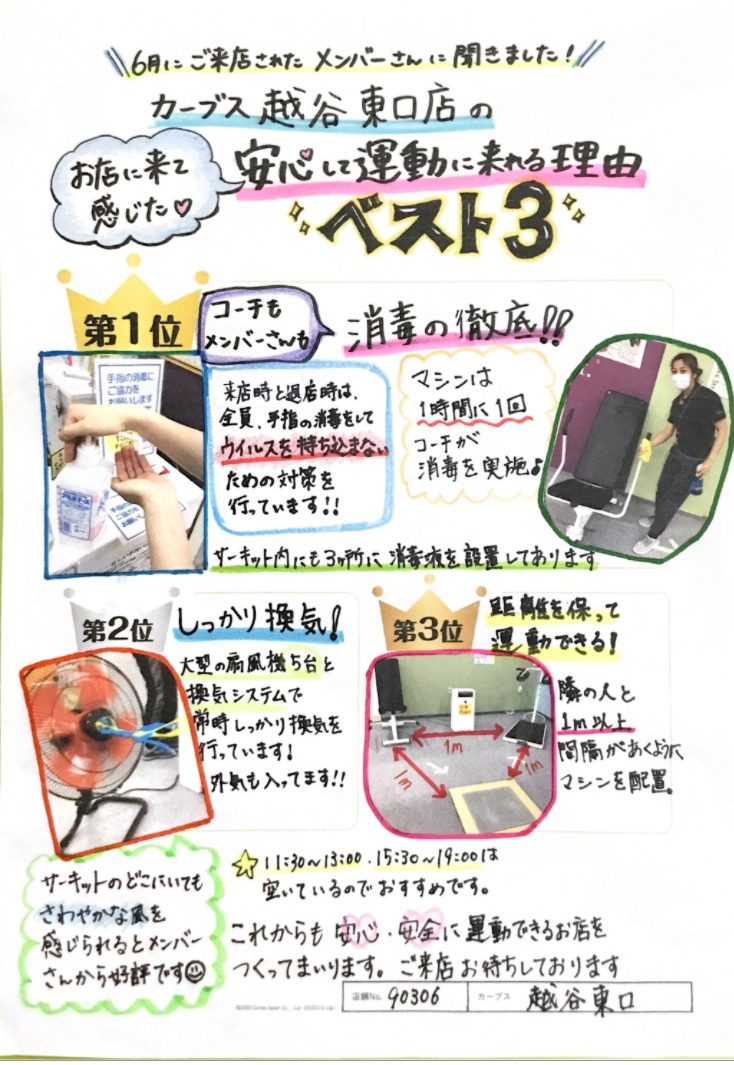 6月に ご来店された メンバーさんに 聞きました!
カーブス 越谷 東口店の
お店に来て
感じた♡
安心して運動に来れる理由
ベスト3
第1位
コーチも
メンバーさんも
消毒の徹底!!
手指の消毒に
ご協力を
お願いします
来店時と退店時は、
全員、手指の消毒をして
ウイルスを持ち込まない
ための対策を
行っています!!
マシンは
1時間に1回
コーチが
消毒を実施♪
サーキット内にも3ヶ所に 消毒液を設置しております
第2位
しっかり換気!
大型の扇風機5台と
換気システムで
常時しっかり換気を
行っています!
外気も入ってます!!
第3位
距離を保って
運動できる!
1m
1m
1m
隣の人と
1m以上
間隔があくように
マシンを配置。
サーキットのどこにいても
さわやかな風を
感じられるとメンバー
さんから好評です☺
☆11:30~13:00・15:30~19:00は
空いているのでおすすめです。
これからも 安心・安全に運動できるお店を
つくってまいります。ご来店お待ちしております
店舗No. 90306 カーブス 越谷東口